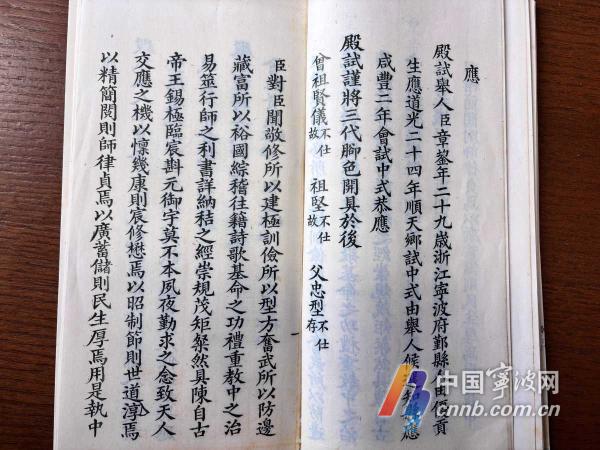 應
殿試舉人臣章鋆年二十九歲浙江寧波府鄞縣人由優貢
生應道光二十四年順天鄉試中式由舉人候應
咸豐二年會試中式恭應
殿試謹將三代腳色開具於後
曾祖賢儀不仕故 祖堅不仕故 父忠型不仕存
臣對臣聞敬修所以建極訓儉所以型方奮武所以防邊
藏富所以裕國綜稽往籍詩歌基命之功禮重教中之治
易筮行師之利書詳納秸之經崇規茂矩粲然具陳自古
帝王錫極臨宸斟元御宇莫不本夙夜勤求之念致天人
交應之機以懍幾康則宸修懋焉以昭制節則世道淳焉
以精簡閱則師律貞焉以廣蓄儲則民生厚焉用是執中
中国宁波网
cnnb.com.cn